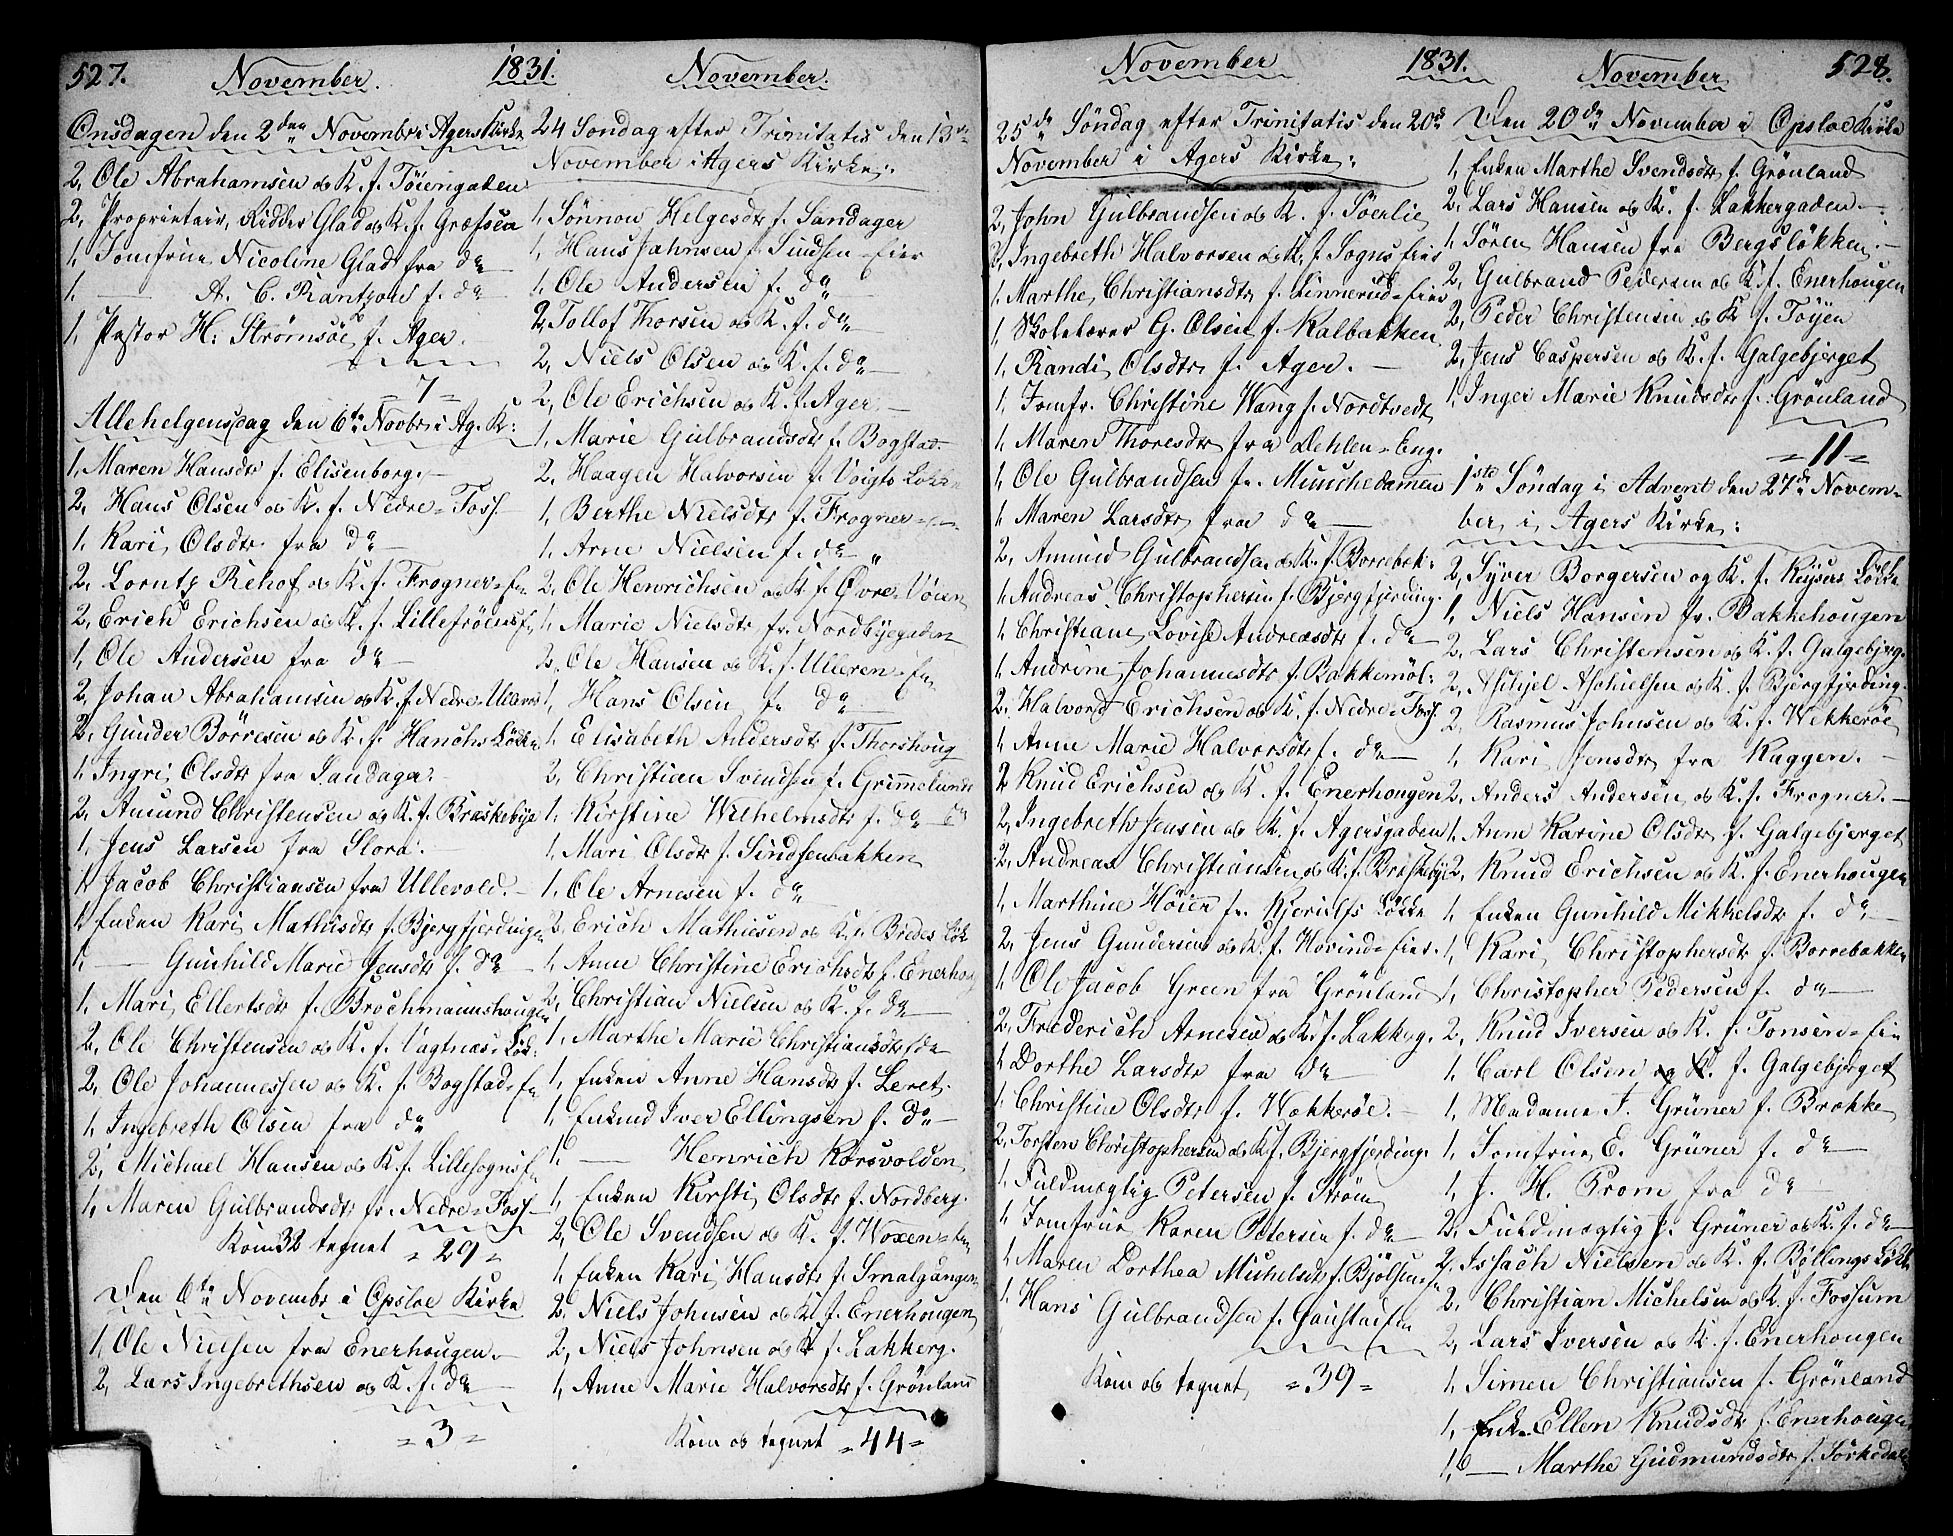 527. November. 1831. November.
Onsdagen den 2den Novembr i Agers Kirke
2, Ole Abrahamsen og K. f. Töiengaden
2, Proprietair, Ridder Glad og K. f. Græfsen
1, Jomfrue Nicoline Glad fra do
1, — A. C. Rantzow f. do
1, Pastor H: Strömsöe f. Ager.
7
Allehelgensdag den 6te Novbr i Ag. K:
1, Maren Hansdtr f. Elisenborg.
2, Hans Olsen og K. f. Nedre-Foss
1, Kari Olsdtr fra do
2, Lorntz Rehof og K. f. Frogner-E
2, Erich Erichsen og K. f. Lillefröens
1, Ole Andersen fra do
2, Johan Abrahamsen og K. f. Nedre-Ulleren
2, Gunder Börresen og K. f. Hanchs Lökke
1, Ingri Olsdtr fra Sandager
2, Amund Christensen og K. f. Braskebye
1, Jens Larsen fra Slora.
1, Jacob Christiansen fra Ullevold.
1, Enken Kari Mathisdtr f. Bjergfjerdingen
1, — Gunhild Marie Jensdtr f. do
1, Mari Ellertsdtr f. Brochmannshougen
2, Ole Christensen og K. f. Vagtnæs-Lök:
2, Ole Johannessen og K. f. Bogstad-E
1, Ingebreth Olsen fra do
2, Michael Hansen og K. f. Lillesogns
1, Maren Gulbrandsdtr fr. Nedre-Foss
Kom 32 tegnet 29
Den 6te Novembr i Opsloe Kirke
1, Ole Nielsen fra Enerhougen.
2, Lars Ingebrethsen og K. f. do
3
24 Söndag efter Trinitatis den 13de
November i Agers Kirke:
1, Sönnow Helgesdtr f. Sandager
1, Hans Jahnsen f. Sindsen-Eier
1, Ole Andersen f. do
2, Tollof Thorsen og K. f. do
2, Niels Olsen og K. f. do
2, Ole Erichsen og K. f. Ager
1, Marie Gulbrandsdtr f. Bogstad
2, Haagen Halvorsen f. Voigts Lökke
1, Berthe Nielsdtr f. Frogner
1, Arne Nielsen f. do
2, Ole Henrichsen og K. f. Övre-Vöien
1, Marie Nielsdtr fr. Nordbyegaden
2, Ole Hansen og K. f. Ulleren-E
1, Hans Olsen f. do
1, Elisabeth Andersdtr f. Thorshoug
2, Christian Svendsen f. Grimmelund
1, Kirstine Wilhelmsdtr f. do
1, Mari Olsdtr f. Sindsenbakken
1, Ole Arnesen f. do
2, Erich Mathiesen og K. f. Bredes Lök
1, Anne Christine Erichsdtr f. Enerhog
2, Christian Nielsen og K. f. do
1, Marthe Marie Christiansdtr f. do
1, Enken Anne Hansdtr f. Leret
1, Enkmd Iver Ellingsen f. do
1, — Henrich Korsvolden
1, Enken Kirsti Olsdtr f. Nordberg.
2, Ole Svendsen og K. f. Woxen
1, Enken Kari Hansdtr f. Smalgangen
2, Niels Johnsen og K. f. Enerhougen
2, Niels Johnsen og K f. Lakkerg.
1, Anne Marie Halvorsdtr f. Grönland
Kom og tegnet 44
November 1831. November 528.
25de Söndag efter Trinitatis den 20de
November i Agers Kirke:
2, John Gulbrandsen og K. f. Söerlie
2, Ingebreth Halvorsen og K. f. Sogns Eier
1, Marthe Christiansdtr f. Linnerud-Eier
1, Skolelærer G. Olsen f. Kalbakken
1, Randi Olsdtr f. Ager.
1, Jomfr. Christine Wang f. Nordtvedt
1, Maren Thoresdtr fra Dehlen-Eng.
1, Ole Gulbrandsen fr. Munchedammen
1, Maren Larsdtr fra do
2, Amund Gulbrandsen og K. f. Borrebek:
1, Andreas Christophersen f. Bjergfjerding.
1, Christiane Lovise Andreasdtr f. do
1, Andrine Johannesdtr f. Bakkemöl:
2, Halvord Erichsen og K. f. Nedre-Foss
1, Anne Marie Halvorsdtr f. do
2, Knud Erichsen og K. f. Enerhougen
2, Ingebreth Jensen og K. f. Agersgaden
2, Andreas Christiansen og K. f. Briskebye
1, Marthine Höier fr. Kjerulfs Lökke
2, Jens Gundersen og K. f. Hovind-Eier.
1, Ole Jacob Green fra Grönland
2, Frederich Arnesen og K. f. Lakkeg.
1, Dorthe Larsdtr fra do
1, Christine Olsdtr f. Wækkeröe.
2, Torsten Christophersen og K. f. Bjergfjerding.
1, Fuldmægtig Petersen f. Ström
1, Jomfrue Karen Petersen f. do
1, Maren Dorthea Michelsdtr f. Bjölsen
1, Hans Gulbrandsen f. Gaustad
Kom og tegnet 39
Den 20de November i Opsloe Kirke
1, Enken Marthe Svendsdtr f. Grönland
2, Lars Hansen og K. f. Lakkergaden
1, Sören Hansen fra Bergslökken.
2, Gulbrand Pedersen og K. f. Enerhougen
2, Peder Christensen og K f. Töyen
2, Jens Caspersen og K. f. Galgebjerget
1, Inger Marie Knudsdtr f. Grönland
11
1ste Söndag i Advent den 27de Novem-
ber i Agers Kirke:
2, Syver Borgersen og K. f. Keysers Lökke
1, Niels Hansen fr. Bakkehougen
2, Lars Christensen og K. f. Galgebjerg.
2, Aslhjel Aslhielsen og K. f. Bjergfjerding.
2, Rasmus Johnsen og K. f. Wekkeröe
1, Kari Jensdtr fra Kaggen.
2, Anders Andersen og K. f. Frogner.
1, Anne Karine Olsdtr f. Galgebjerget
2, Knud Erichsen og K. f. Enerhougen
1, Enken Gunhild Mikkelsdtr f. do
1, Kari Christophersdtr f. Borrebakken
1, Christopher Pedersen f. do
2, Knud Iversen og K. f. Tonsen-Eie
1, Carl Olsen og K. f. Galgebjerget
1, Madame J. Grüner f. Brække
1, Jomfrue E. Grüner f. do
1, J. H. Prom fra do
2, Fuldmægtig J. Grüner og K. f. do
2, Issach Nielsen og K. f. Böllings Lökke
2, Christian Michelsen og K. f. Fossum
2, Lars Iversen og K. f. Enerhougen
1, Simen Christiansen f. Grönland
1, Enk. Ellen Knudsdtr f. Enerhougen
1, — Marthe Gudmundsdtr f. Sörkedal